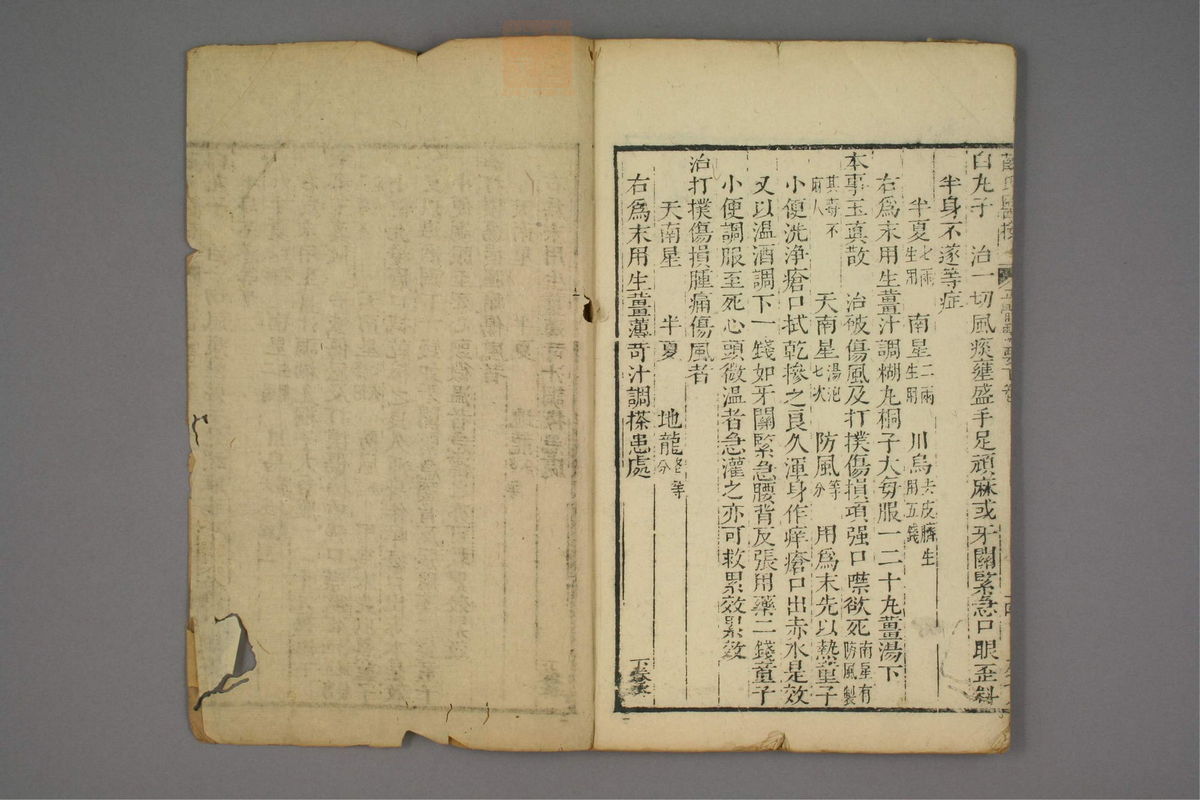 白丸子　治一切風痰壅盛手足頑麻或牙關緊急口眼歪斜
半身不遂等症
半夏七兩生用　南星二兩生用　川烏去皮臍生用五錢
右爲末用生薑汁調糊丸桐子大每服一二十丸薑湯下
本事玉眞散　治破傷風及打撲傷損項强口噤欲死南星有防風製
其毒不麻人　天南星湯泡七次　防風等分　用爲末先以熱童子
小便洗淨瘡口拭乾摻之良久渾身作痒瘡口出赤水是效
又以温酒調下一錢如牙關緊急腰背反張用藥二錢童子
小便調服至死心頭微温者急灌之亦可救累效累效
治打撲傷損腫痛傷風者
天南星　半夏　地龍各等分
右爲末用生薑薄荷汁調搽患處
下卷終